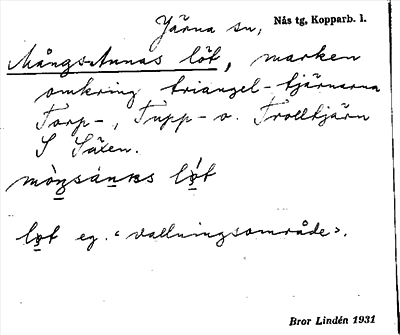 Järna sn, Nås tg, Kopparb. l.
Mångs Annas löt, marken
omkring triangel-tjärnarna
Torp-, Tupp- o. Trolltjärn
S Säxen.
löt eg. "vallningsområde".
Bror Lindén 1931